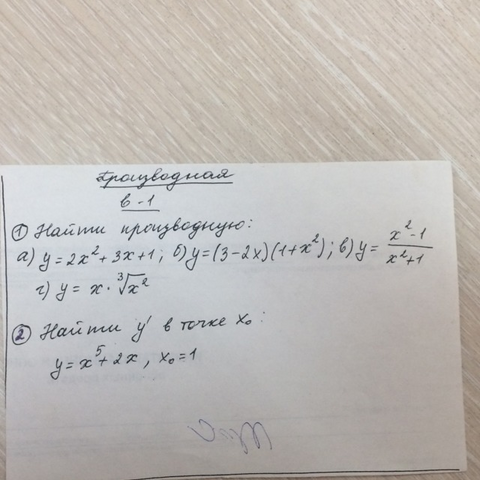 Производная
в-1
① Найти производную:
а) y = 2x² + 3x + 1; б) y = (3 - 2x)(1 + x²); в) y = \frac{x² - 1}{x² + 1}
г) y = x · ∛x²
② Найти y' в точке x₀:
y = x⁵ + 2x, x₀ = 1